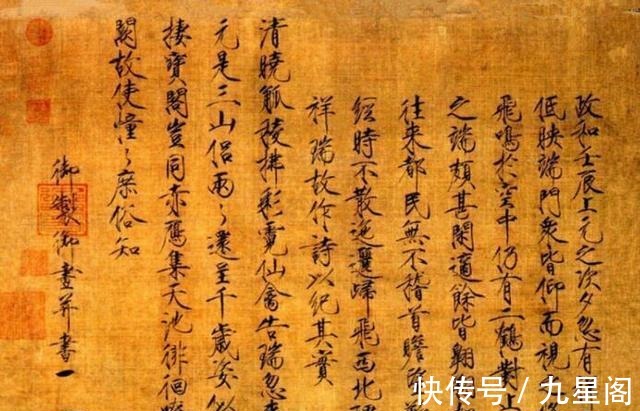 政和壬辰上元之次夕忽有
低映端門眾皆仰而視
飛鳴於空中仍有二鶴對止
之端頗甚閑適餘皆翱
往來都民無不稽首瞻
經時不散迤邐歸飛西北
祥瑞故作詩以紀其實
清曉觚稜拂彩霓仙禽告瑞忽來
元是三山侶兩〻還呈千歲姿似
棲寶閣豈同赤鴈集天池徘徊
闕故使憧〻庶俗知
御製御畫并書
快传号/九星阁